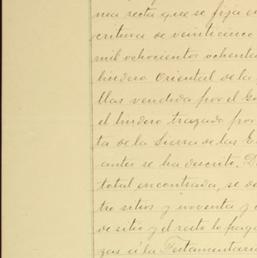 una recta que se fija en
critura de veinticinco
mil ochocientos ochenta
lindero Oriental de la
llas vendida por el Go
el lindero trazado por
ta de la Sierra de las E
antes se ha descrito. D
total encontrada, se de
tro sitios y noventa y
de sitio y el resto lo pag
gas á la Testamentaria